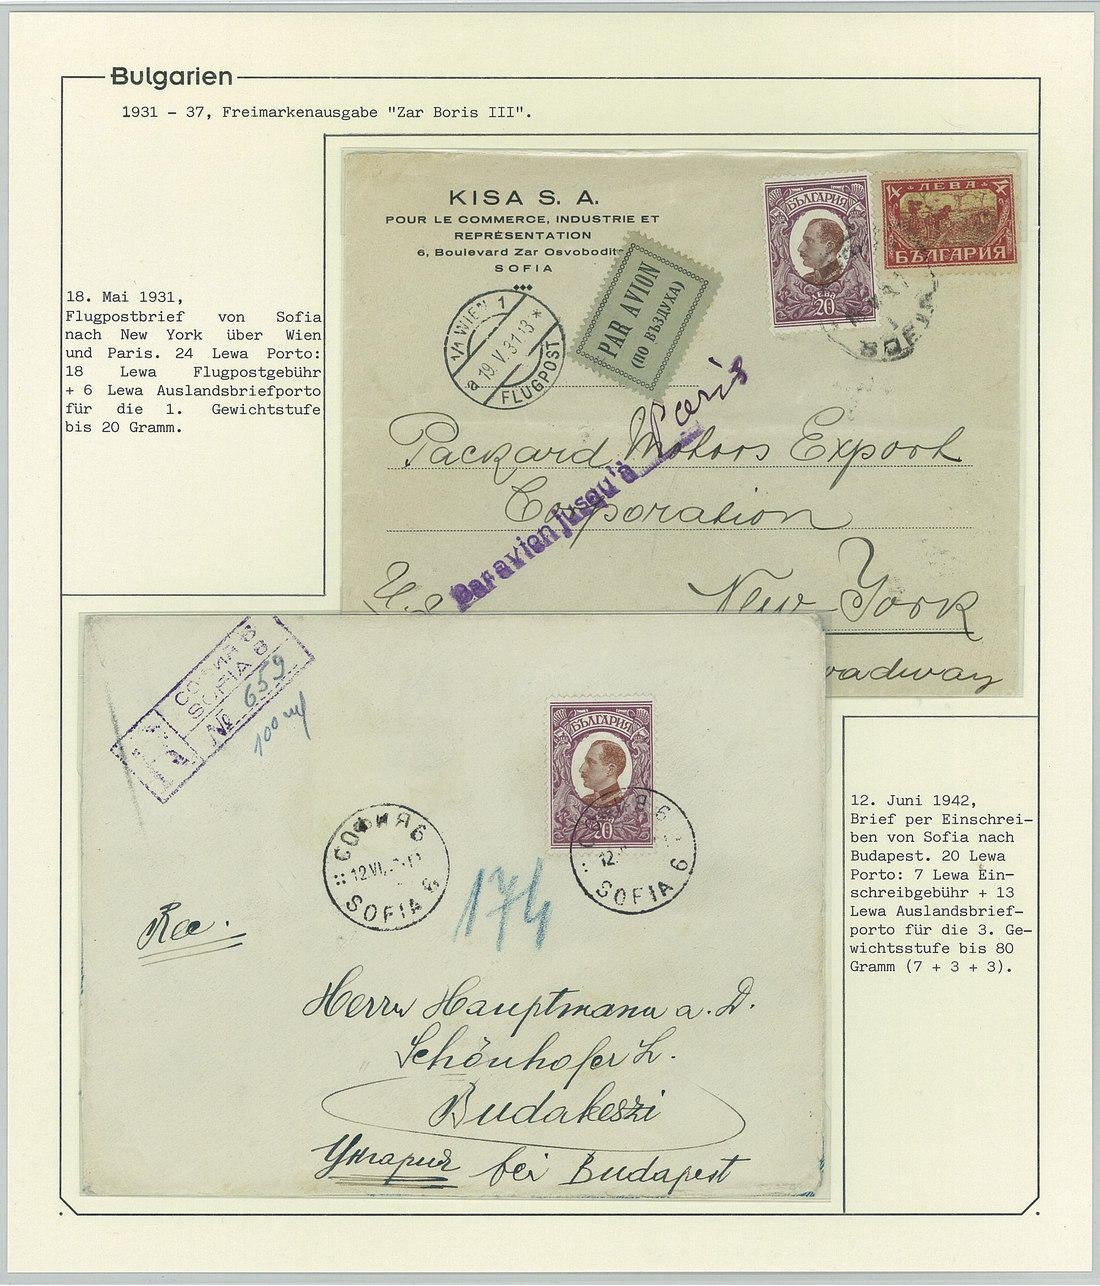 Bulgarien
1931 - 37, Freimarkenausgabe "Zar Boris III".
18. Mai 1931,
Flugpostbrief von Sofia
nach New York über Wien
und Paris. 24 Lewa Porto:
18 Lewa Flugpostgebühr
+ 6 Lewa Auslandsbriefporto
für die 1. Gewichtstufe
bis 20 Gramm.
KISA S. A.
POUR LE COMMERCE, INDUSTRIE ET
REPRÉSENTATION
6, Boulevard Zar Osvobodit
SOFIA
1/1 WIEN 1
a 19.V.31·13 *
FLUGPOST
PAR AVION
(ПО ВЪЗДУХА)
БЪЛГАРИЯ
ЛЕВА
20
4 ЛЕВА
БЪЛГАРИЯ
SOFIA
Par avion jusqu'à Paris
Packard Motors Export
Corporation
New-York
roadway
СОФИЯ 6
SOFIA 6
№ 659
100
БЪЛГАРИЯ
20
СОФИЯ 6
12.VI.
SOFIA 6
12.
SOFIA 6
174
Rec.
Herrn Hauptmann a. D.
Schönhofer L.
Budakeszi
Унгария bei Budapest
12. Juni 1942,
Brief per Einschrei-
ben von Sofia nach
Budapest. 20 Lewa
Porto: 7 Lewa Ein-
schreibgebühr + 13
Lewa Auslandsbrief-
porto für die 3. Ge-
wichtsstufe bis 80
Gramm (7 + 3 + 3).